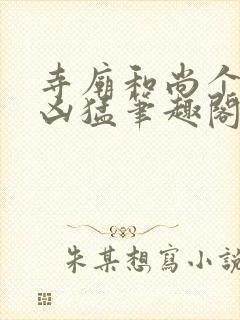 寺廟和尚个
凶猛筆趣閣
朱某想寫小說